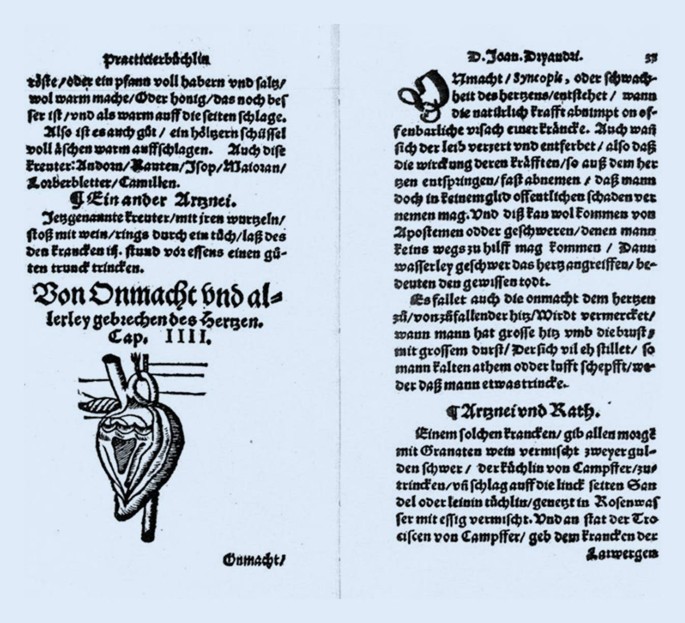 Practicierbüchlin
röste/oder ein pfann voll habern vnd saltz/
wol warm mache/Oder hönig/das noch bes
ser ist/vnd als warm auff die seiten schlage.
Also ist es auch gůt/ ein höltzern schüssel
voll äschen warm auffschlagen. Auch dise
kreuter: Andorn/Rauten/Isop/Maioran/
Lorberbletter/Camillen.
¶ Ein ander Artznei.
Jetzgenannte kreuter/mit jren wurtzeln/
stoß mit wein/rings durch ein tůch/laß des
den krancken iij. stund vor essens einen gů-
ten trunck trincken.
Von Onmacht vnd al-
lerley gebrechen des Hertzen.
Cap. IIII.
Onmacht/
D. Joan. Dryandri. 37
ONmacht/ Syncopis, oder schwach-
heit des hertzens/entstehet/ wann
die natürlich krafft abnimpt on of-
fenbarliche vrsach einer kräncke. Auch wañ
sich der leib verzert vnd entferbet/ also daß
die wirckung deren kräfften/so auß dem her
tzen entspringen/fast abnemen/ daß mann
doch in keinem glid offentlichen schaden ver
nemen mag. Vnd diß kan wol kommen von
Apostemen odder geschweren/denen mann
keins wegs zu hilff mag kommen/ Dann
wasserley geschwer das hertz angreiffen/ be-
deuten den gewissen todt.
Es fallet auch die onmacht dem hertzen
zů/von zůfallender hitz/Wirdt vermercket/
wann mann hat grosse hitz vmb die brust/
mit grossem durst/Der sich vil eh stillet/ so
mann kalten athem odder lufft schepfft/we-
der daß mann etwas trincke.
¶ Artznei vnd Rath.
Einem solchen krancken/ gib allen morgẽ
mit Granaten wein vermischt zweyer gul-
den schwer/ der küchlin von Campffer/zu-
trincken/vñ schlag auff die linck seiten San
del oder leinin tüchlin/genetzt in Rosenwas
ser mit essig vermischt. Vnd an stat der Tro
ciscen von Campffer/ geb dem krancken der
Latwergen